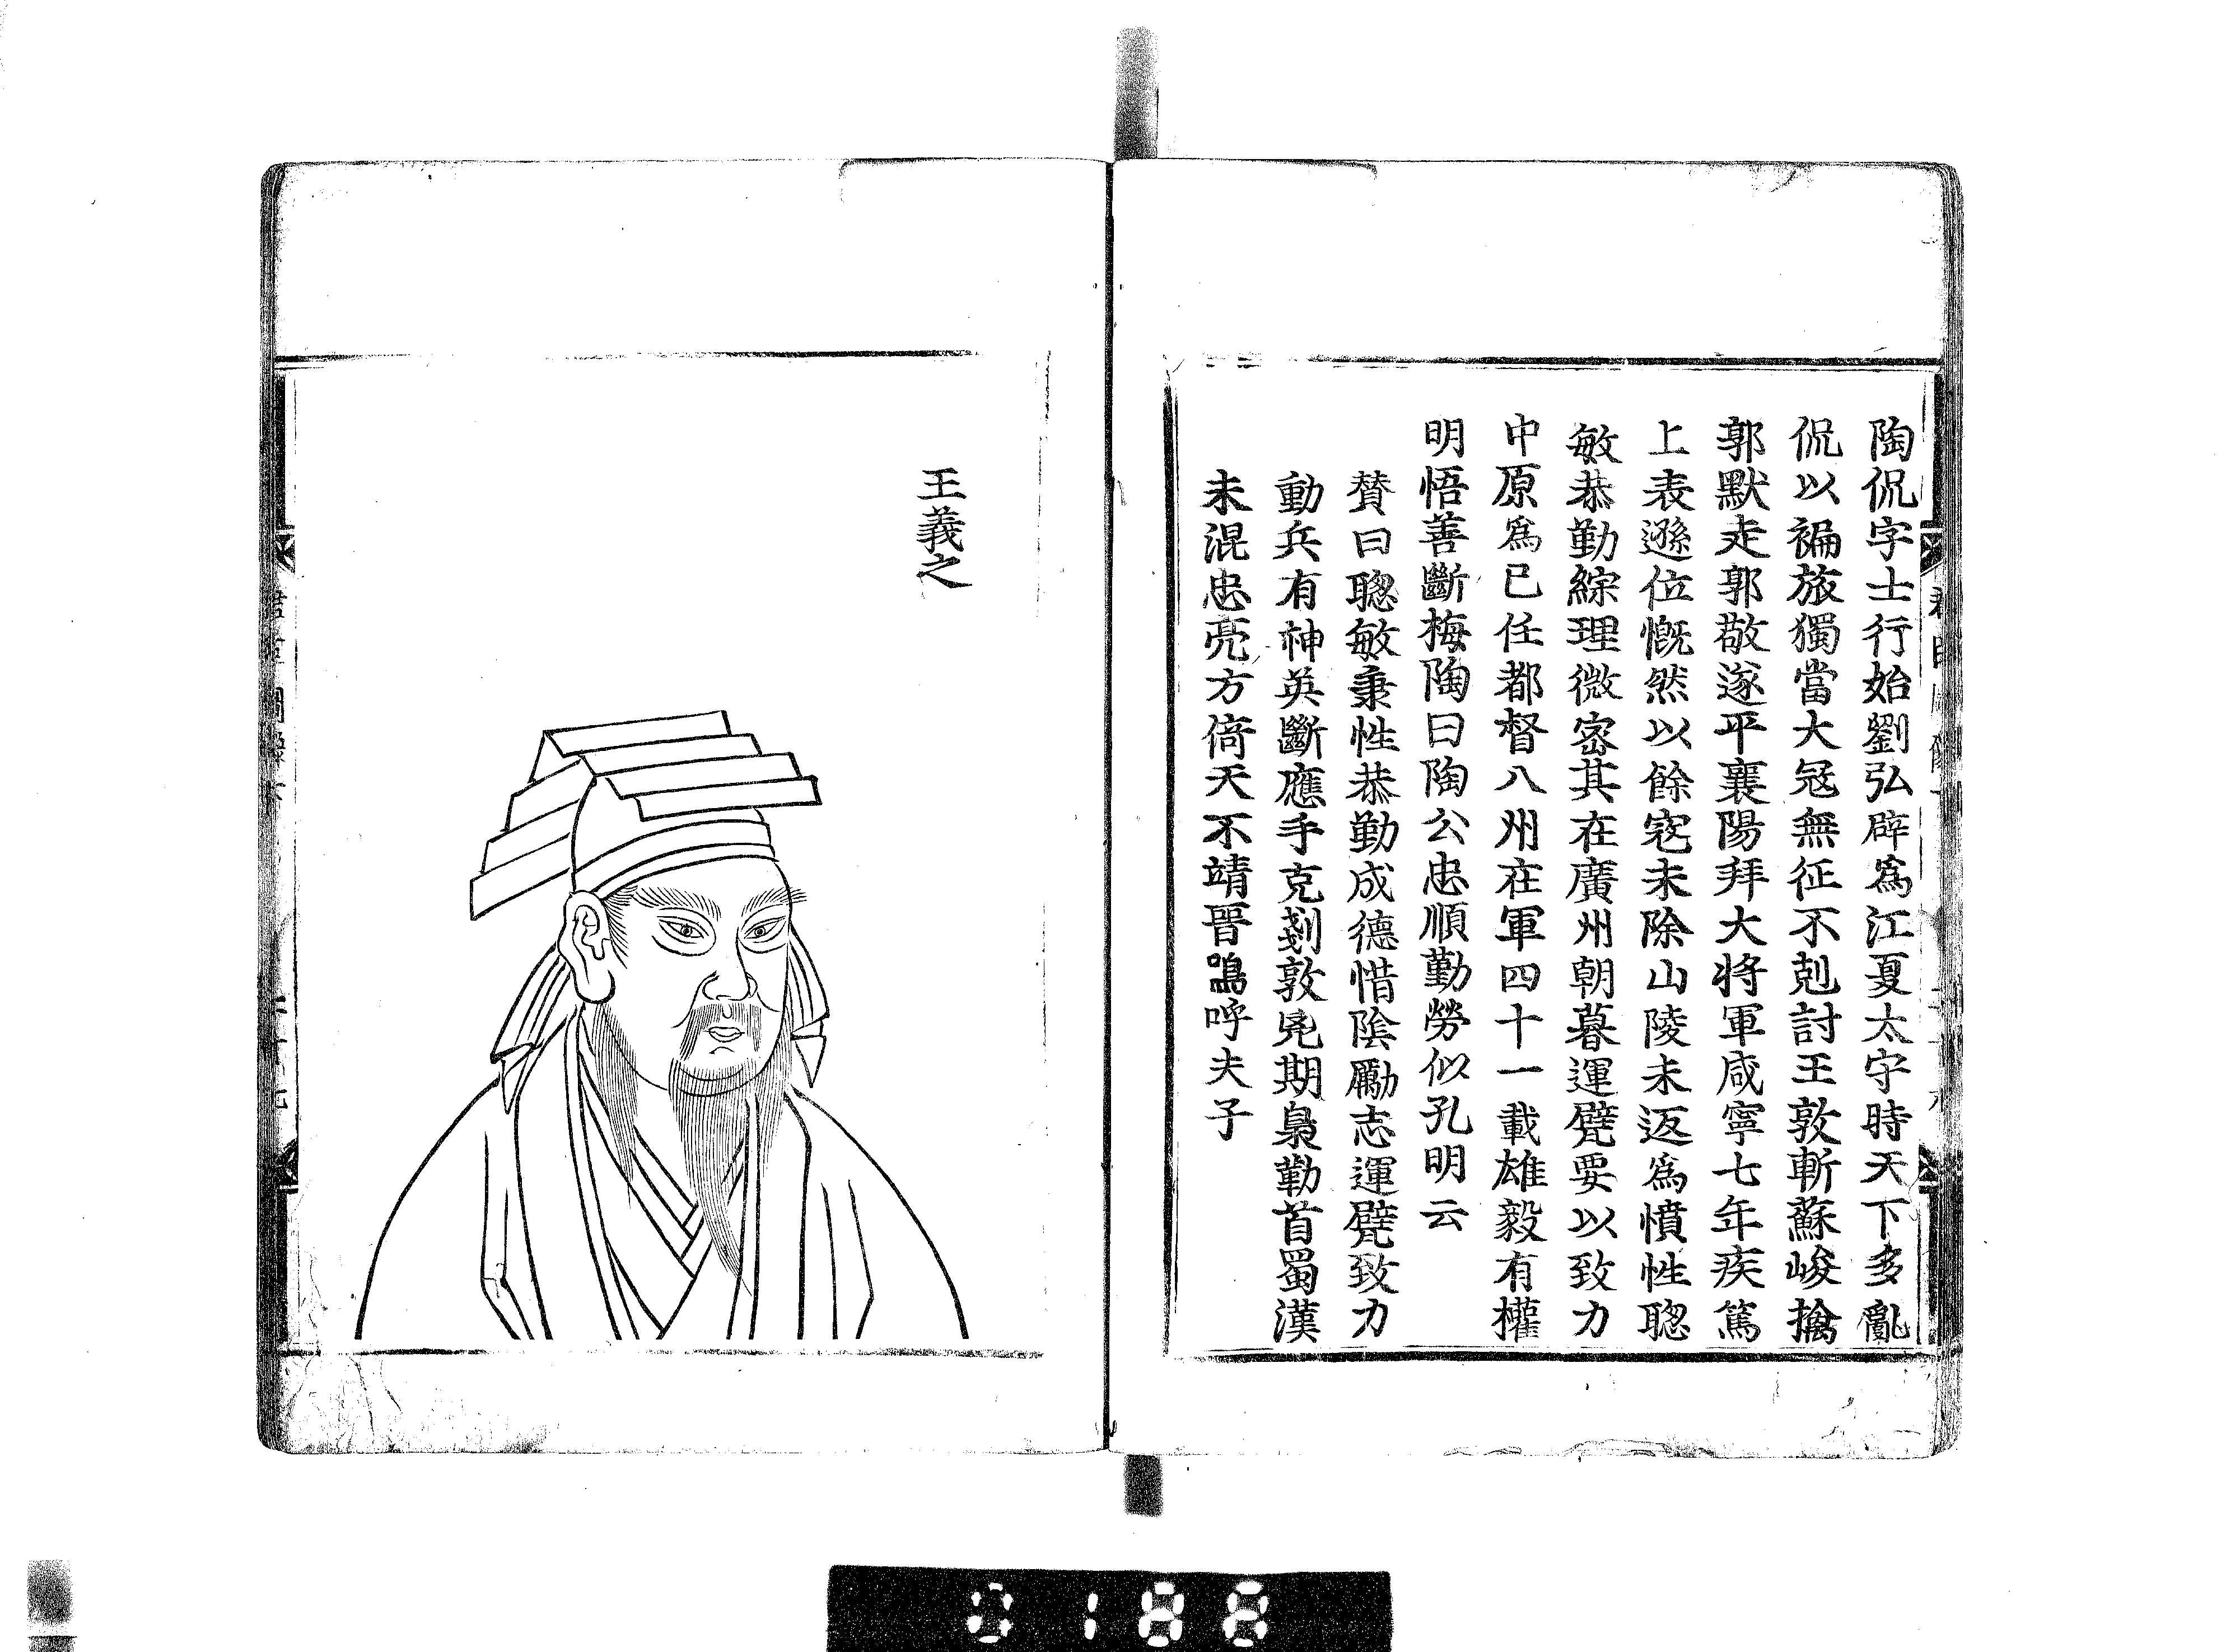 陶侃字士行始劉弘辟爲江夏太守時天下多亂
侃以褊旅獨當大冦無征不剋討王敦斬蘇峻擒
郭默走郭敬遂平襄陽拜大將軍咸寧七年疾篤
上表遜位慨然以餘寇未除山陵未返爲憤性聦
敏恭勤綜理微宻其在廣州朝暮運甓要以致力
中原爲已任都督八州在軍四十一載雄毅有權
明悟善斷梅陶曰陶公忠順勤勞似孔明云
賛曰聦敏秉性恭勤成德惜陰勵志運甓致力
動兵有神英斷應手克剗敦兇期梟勒首蜀漢
未混忠亮方倚天不靖晉嗚呼夫子
王義之
0188